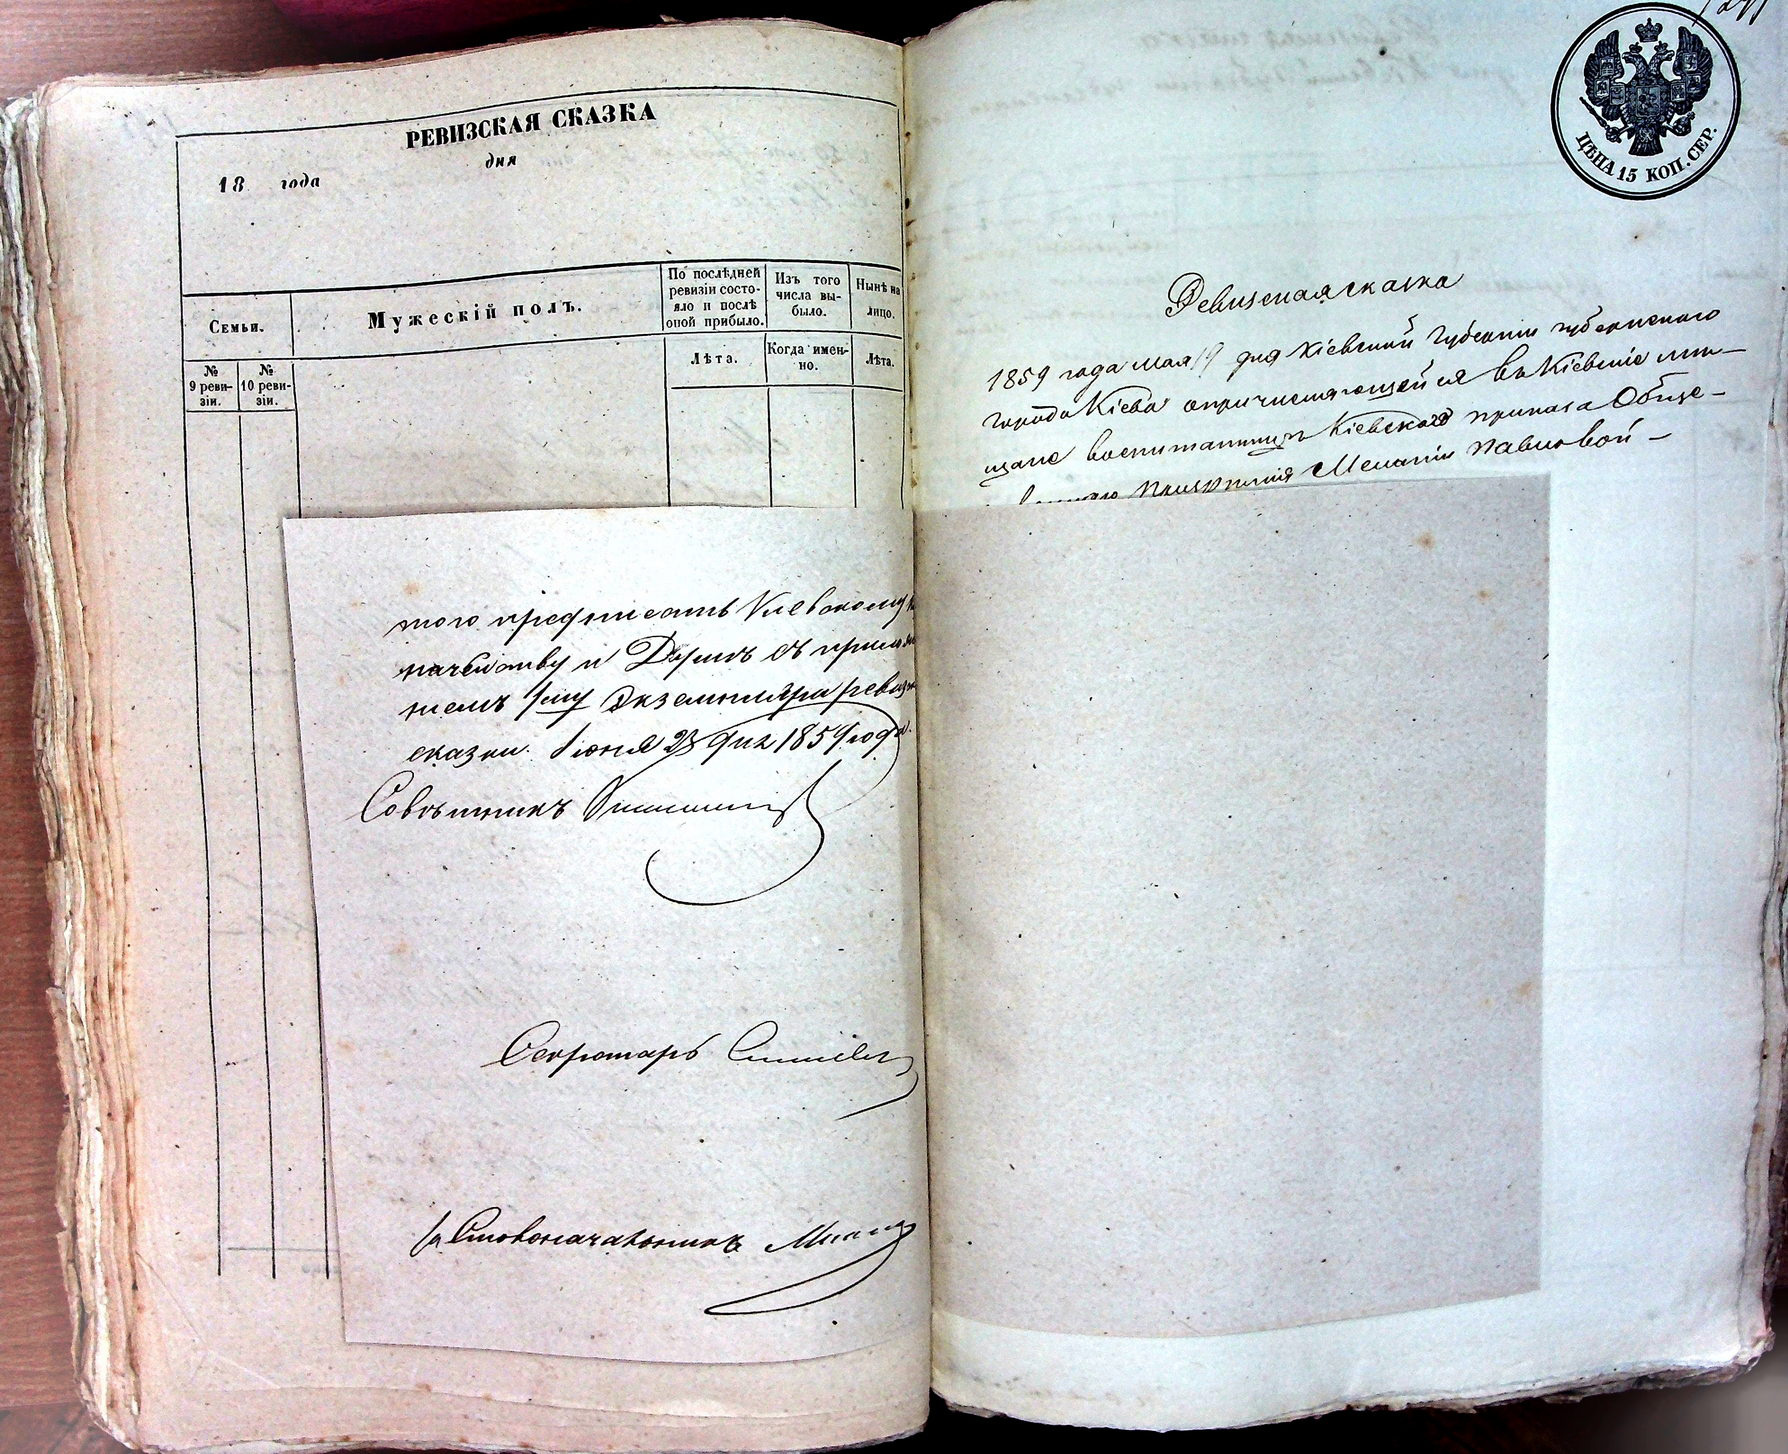 РЕВИЗСКАЯ СКАЗКА
дня
18 года
Семьи.
Мужескій полъ.
По послѣдней
ревизіи состо-
яло и послѣ
оной прибыло.
Изъ того
числа вы-
было.
Нынѣ на
лицо.
№
9 реви-
зіи.
№
10 реви-
зіи.
Лѣта.
Когда имен-
но.
Лѣта.
того предписать Киевскому
начальству и Думѣ съ
1му экземпляра
сказки. Іюня 23 дня 1859 года.
Совѣтникъ
Секретарь
Столоначальникъ
ЦѢНА 15 КОП. СЕР.
Ревизская сказка
1859 года мая 19 дня Кіевской Губерніи губернскаго
города Кіева о причисляющейся въ Кіевскіе мѣ-
щане воспитанницы Кіевского приказа Обще-
призрѣнія Меланіи Павловой